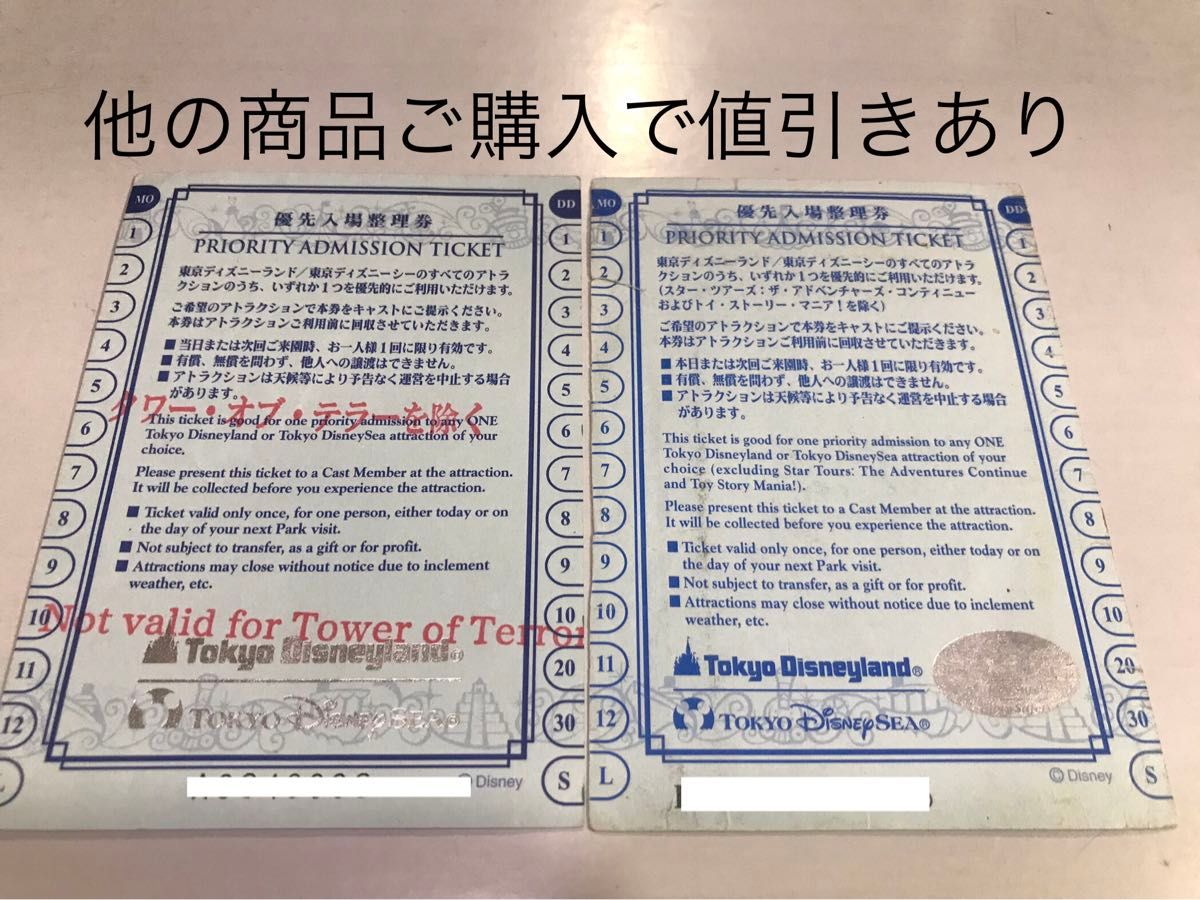 他の商品ご購入で値引きあり
MO
DD
優先入場整理券
PRIORITY ADMISSION TICKET
東京ディズニーランド／東京ディズニーシーのすべてのアトラ
クションのうち、いずれか1つを優先的にご利用いただけます。
ご希望のアトラクションで本券をキャストにご提示ください。
本券はアトラクションご利用前に回収させていただきます。
■ 当日または次回ご来園時、お一人様1回に限り有効です。
■ 有償、無償を問わず、他人への譲渡はできません。
■ アトラクションは天候等により予告なく運営を中止する場合
があります。
タワー・オブ・テラーを除く
This ticket is good for one priority admission to any ONE
Tokyo Disneyland or Tokyo DisneySea attraction of your
choice.
Please present this ticket to a Cast Member at the attraction.
It will be collected before you experience the attraction.
■ Ticket valid only once, for one person, either today or on
the day of your next Park visit.
■ Not subject to transfer, as a gift or for profit.
■ Attractions may close without notice due to inclement
weather, etc.
Not valid for Tower of Terror
Tokyo Disneyland®
TOKYO DISNEYSEA®
© Disney
1
2
3
4
5
6
7
8
9
10
11
12
L
1
2
3
4
5
6
7
8
9
10
20
30
S
MO
DD
優先入場整理券
PRIORITY ADMISSION TICKET
東京ディズニーランド／東京ディズニーシーのすべてのアトラ
クションのうち、いずれか1つを優先的にご利用いただけます。
(スター・ツアーズ：ザ・アドベンチャーズ・コンティニュー
およびトイ・ストーリー・マニア！を除く)
ご希望のアトラクションで本券をキャストにご提示ください。
本券はアトラクションご利用前に回収させていただきます。
■ 本日または次回ご来園時、お一人様1回に限り有効です。
■ 有償、無償を問わず、他人への譲渡はできません。
■ アトラクションは天候等により予告なく運営を中止する場合
があります。
This ticket is good for one priority admission to any ONE
Tokyo Disneyland or Tokyo DisneySea attraction of your
choice (excluding Star Tours: The Adventures Continue
and Toy Story Mania!).
Please present this ticket to a Cast Member at the attraction.
It will be collected before you experience the attraction.
■ Ticket valid only once, for one person, either today or on
the day of your next Park visit.
■ Not subject to transfer, as a gift or for profit.
■ Attractions may close without notice due to inclement
weather, etc.
Tokyo Disneyland®
TOKYO DISNEYSEA®
© Disney
1
2
3
4
5
6
7
8
9
10
11
12
L
1
2
3
4
5
6
7
8
9
10
20
30
S